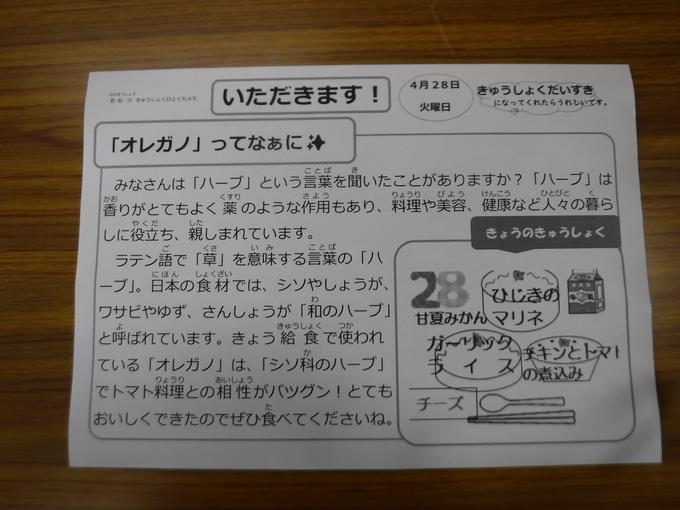 きゅうしょくひとくちメモ
いただきます！
4月28日
火曜日
きゅうしょくだいすき
になってくれたらうれしいです。
「オレガノ」ってなぁに
みなさんは「ハーブ」という言葉を聞いたことがありますか？「ハーブ」は
香りがとてもよく薬のような作用もあり、料理や美容、健康など人々の暮ら
しに役立ち、親しまれています。
ラテン語で「草」を意味する言葉の「ハ
ーブ」。日本の食材では、シソやしょうが、
ワサビやゆず、さんしょうが「和のハーブ」
と呼ばれています。きょう給食で使われ
ている「オレガノ」は、「シソ科のハーブ」
でトマト料理との相性がバツグン！とても
おいしくできたのでぜひ食べてくださいね。
きょうのきゅうしょく
28
甘夏みかん
ひじきの
マリネ
ガーリック
ライス
チキンとトマト
の煮込み
チーズ